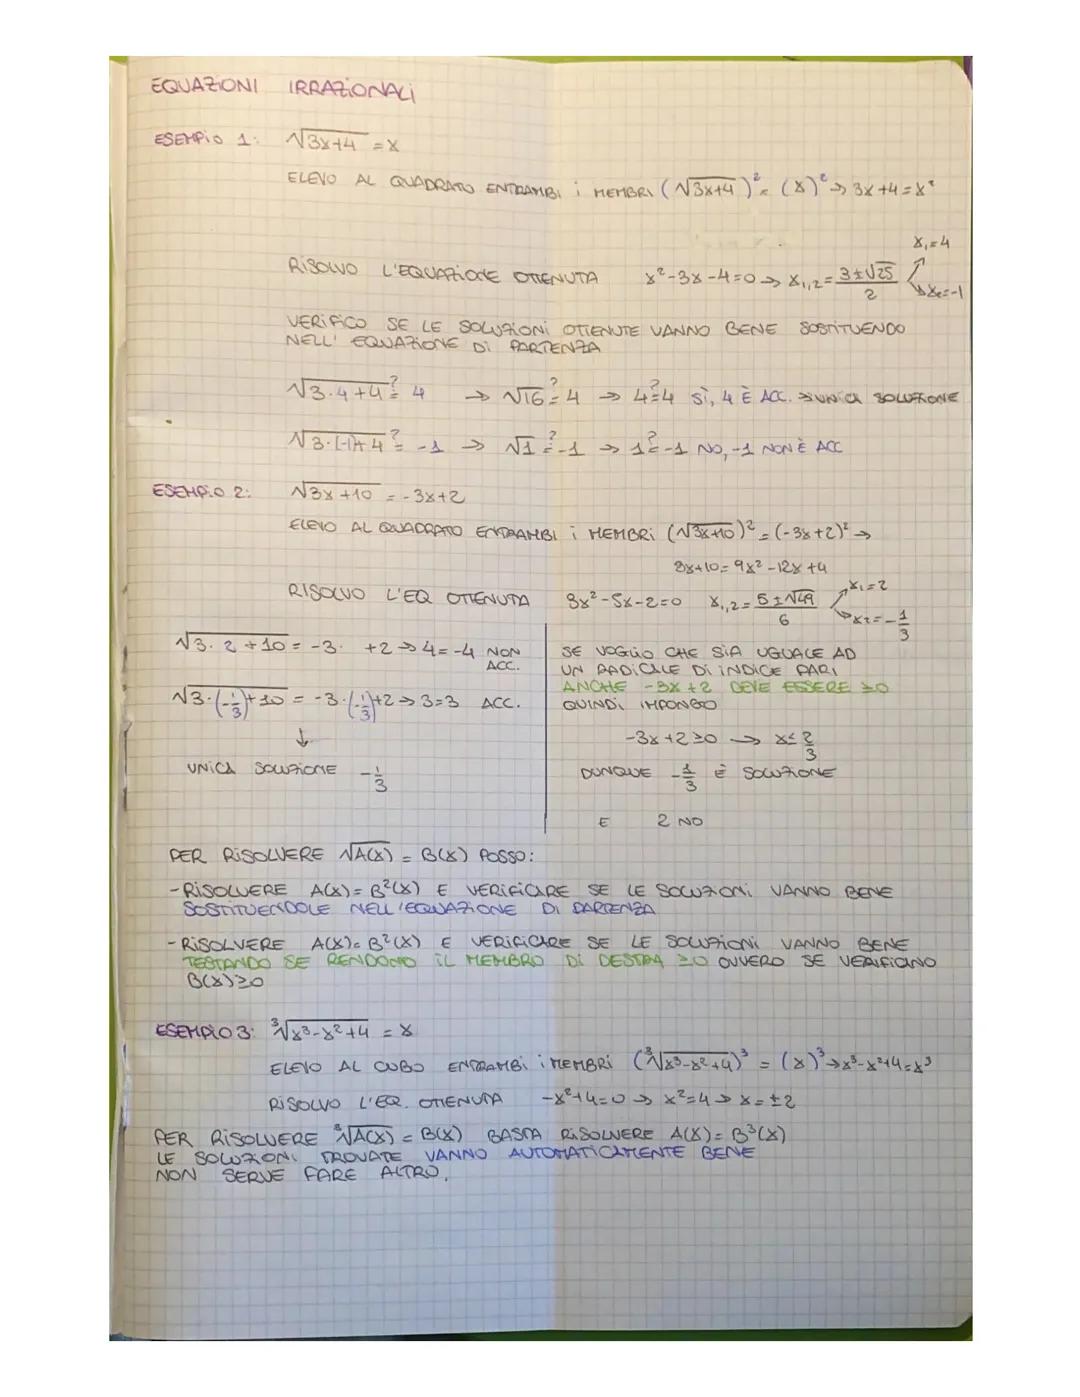 EQUAZIONI IRRAZIONALI
ESEMPIO 1: √(3x+4) = x
ELEVO AL QUADRATO ENTRAMBI i MEMBRI (√(3x+4))² = (x)² → 3x+4=x²
x₁=4
RISOLVO L'EQUAZIONE OTTENUTA x²-3x-4=0 → x₁,₂ = (3±√25)/2
x₂=-1
VERIFICO SE LE SOLUZIONI OTTENUTE VANNO BENE SOSTITUENDO
NELL' EQUAZIONE DI PARTENZA
√(3·4+4) ?= 4 → √16 ?= 4 → 4 ?= 4 SÌ, 4 È ACC. → UNICA SOLUZIONE
√(3·(-1)+4) ?= -1 → √1 ?= -1 → 1 ?= -1 NO, -1 NON È ACC
ESEMPIO 2: √(3x+10) = -3x+2
ELEVO AL QUADRATO ENTRAMBI i MEMBRI (√(3x+10))² = (-3x+2)² →
3x+10 = 9x²-12x+4
RISOLVO L'EQ OTTENUTA 3x²-5x-2=0 x₁,₂ = (5±√49)/6 x₁=2 x₂=-1/3
√(3·2+10) = -3· +2 → 4=-4 NON
ACC.
√(3·(-1/3)+10) = -3·(-1/3)+2 → 3=3 ACC.
↓
UNICA SOLUZIONE -1/3
SE VOGLIO CHE SIA UGUALE AD
UN RADICALE DI INDICE PARI
ANCHE -3x+2 DEVE ESSERE ≥0
QUINDI IMPONGO
-3x+2≥0 → x≤2/3
DUNQUE -1/3 È SOLUZIONE
E 2 NO
PER RISOLVERE √A(x) = B(x) POSSO:
-RISOLVERE A(x)=B²(x) E VERIFICARE SE LE SOLUZIONI VANNO BENE
SOSTITUENDOLE NELL'EQUAZIONE DI PARTENZA
-RISOLVERE A(x)=B²(x) E VERIFICARE SE LE SOLUZIONI VANNO BENE
TESTANDO SE RENDONO IL MEMBRO DI DESTRA ≥0 OVVERO SE VERIFICANO
B(x)≥0
ESEMPIO 3: ³√(x³-x²+4) = x
ELEVO AL CUBO ENTRAMBI i MEMBRI (³√(x³-x²+4))³ = (x)³ → x³-x²+4=x³
RISOLVO L'EQ. OTTENUTA -x²+4=0 → x²=4 → x=±2
PER RISOLVERE ³√A(x) = B(x) BASTA RISOLVERE A(x)=B³(x)
LE SOLUZIONI TROVATE VANNO AUTOMATICAMENTE BENE
NON SERVE FARE ALTRO.